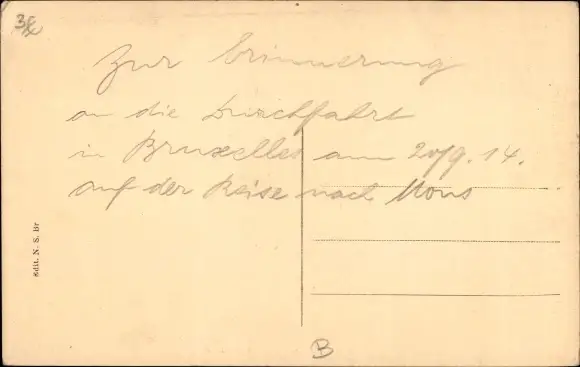 Zur Erinnerung
an die Durchfahrt
in Bruxelles am 20/9.14.
auf der Reise nach Mons
Edit. N. S. Br
B